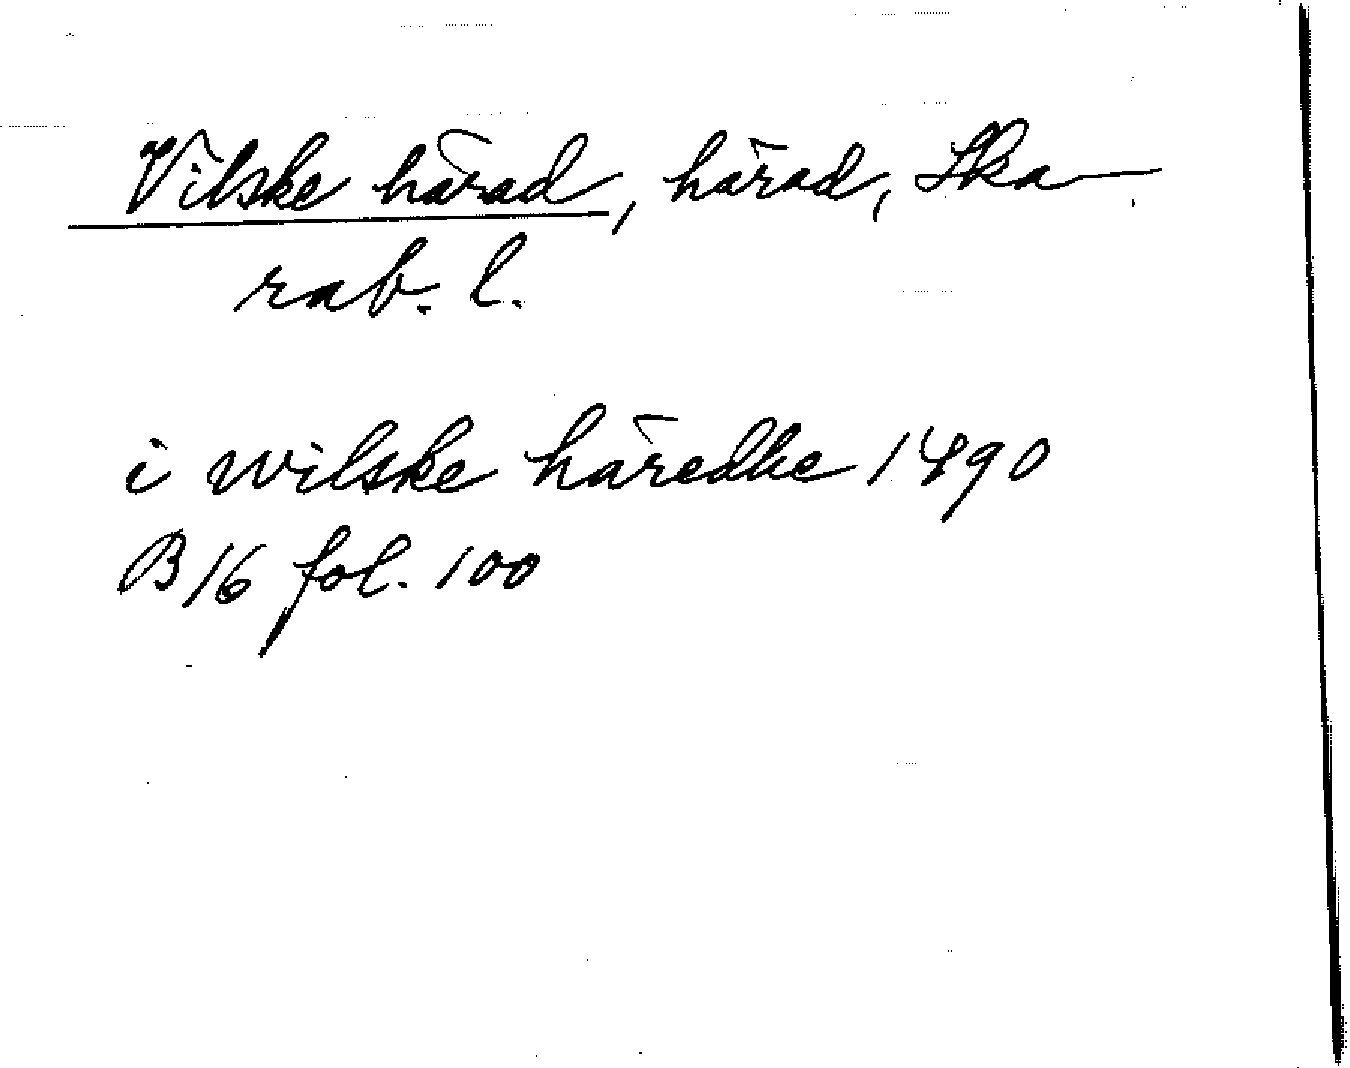 Vilske härad, härad, Ska-
rab. l.
i wilske häredhe 1490
B 16 fol. 100